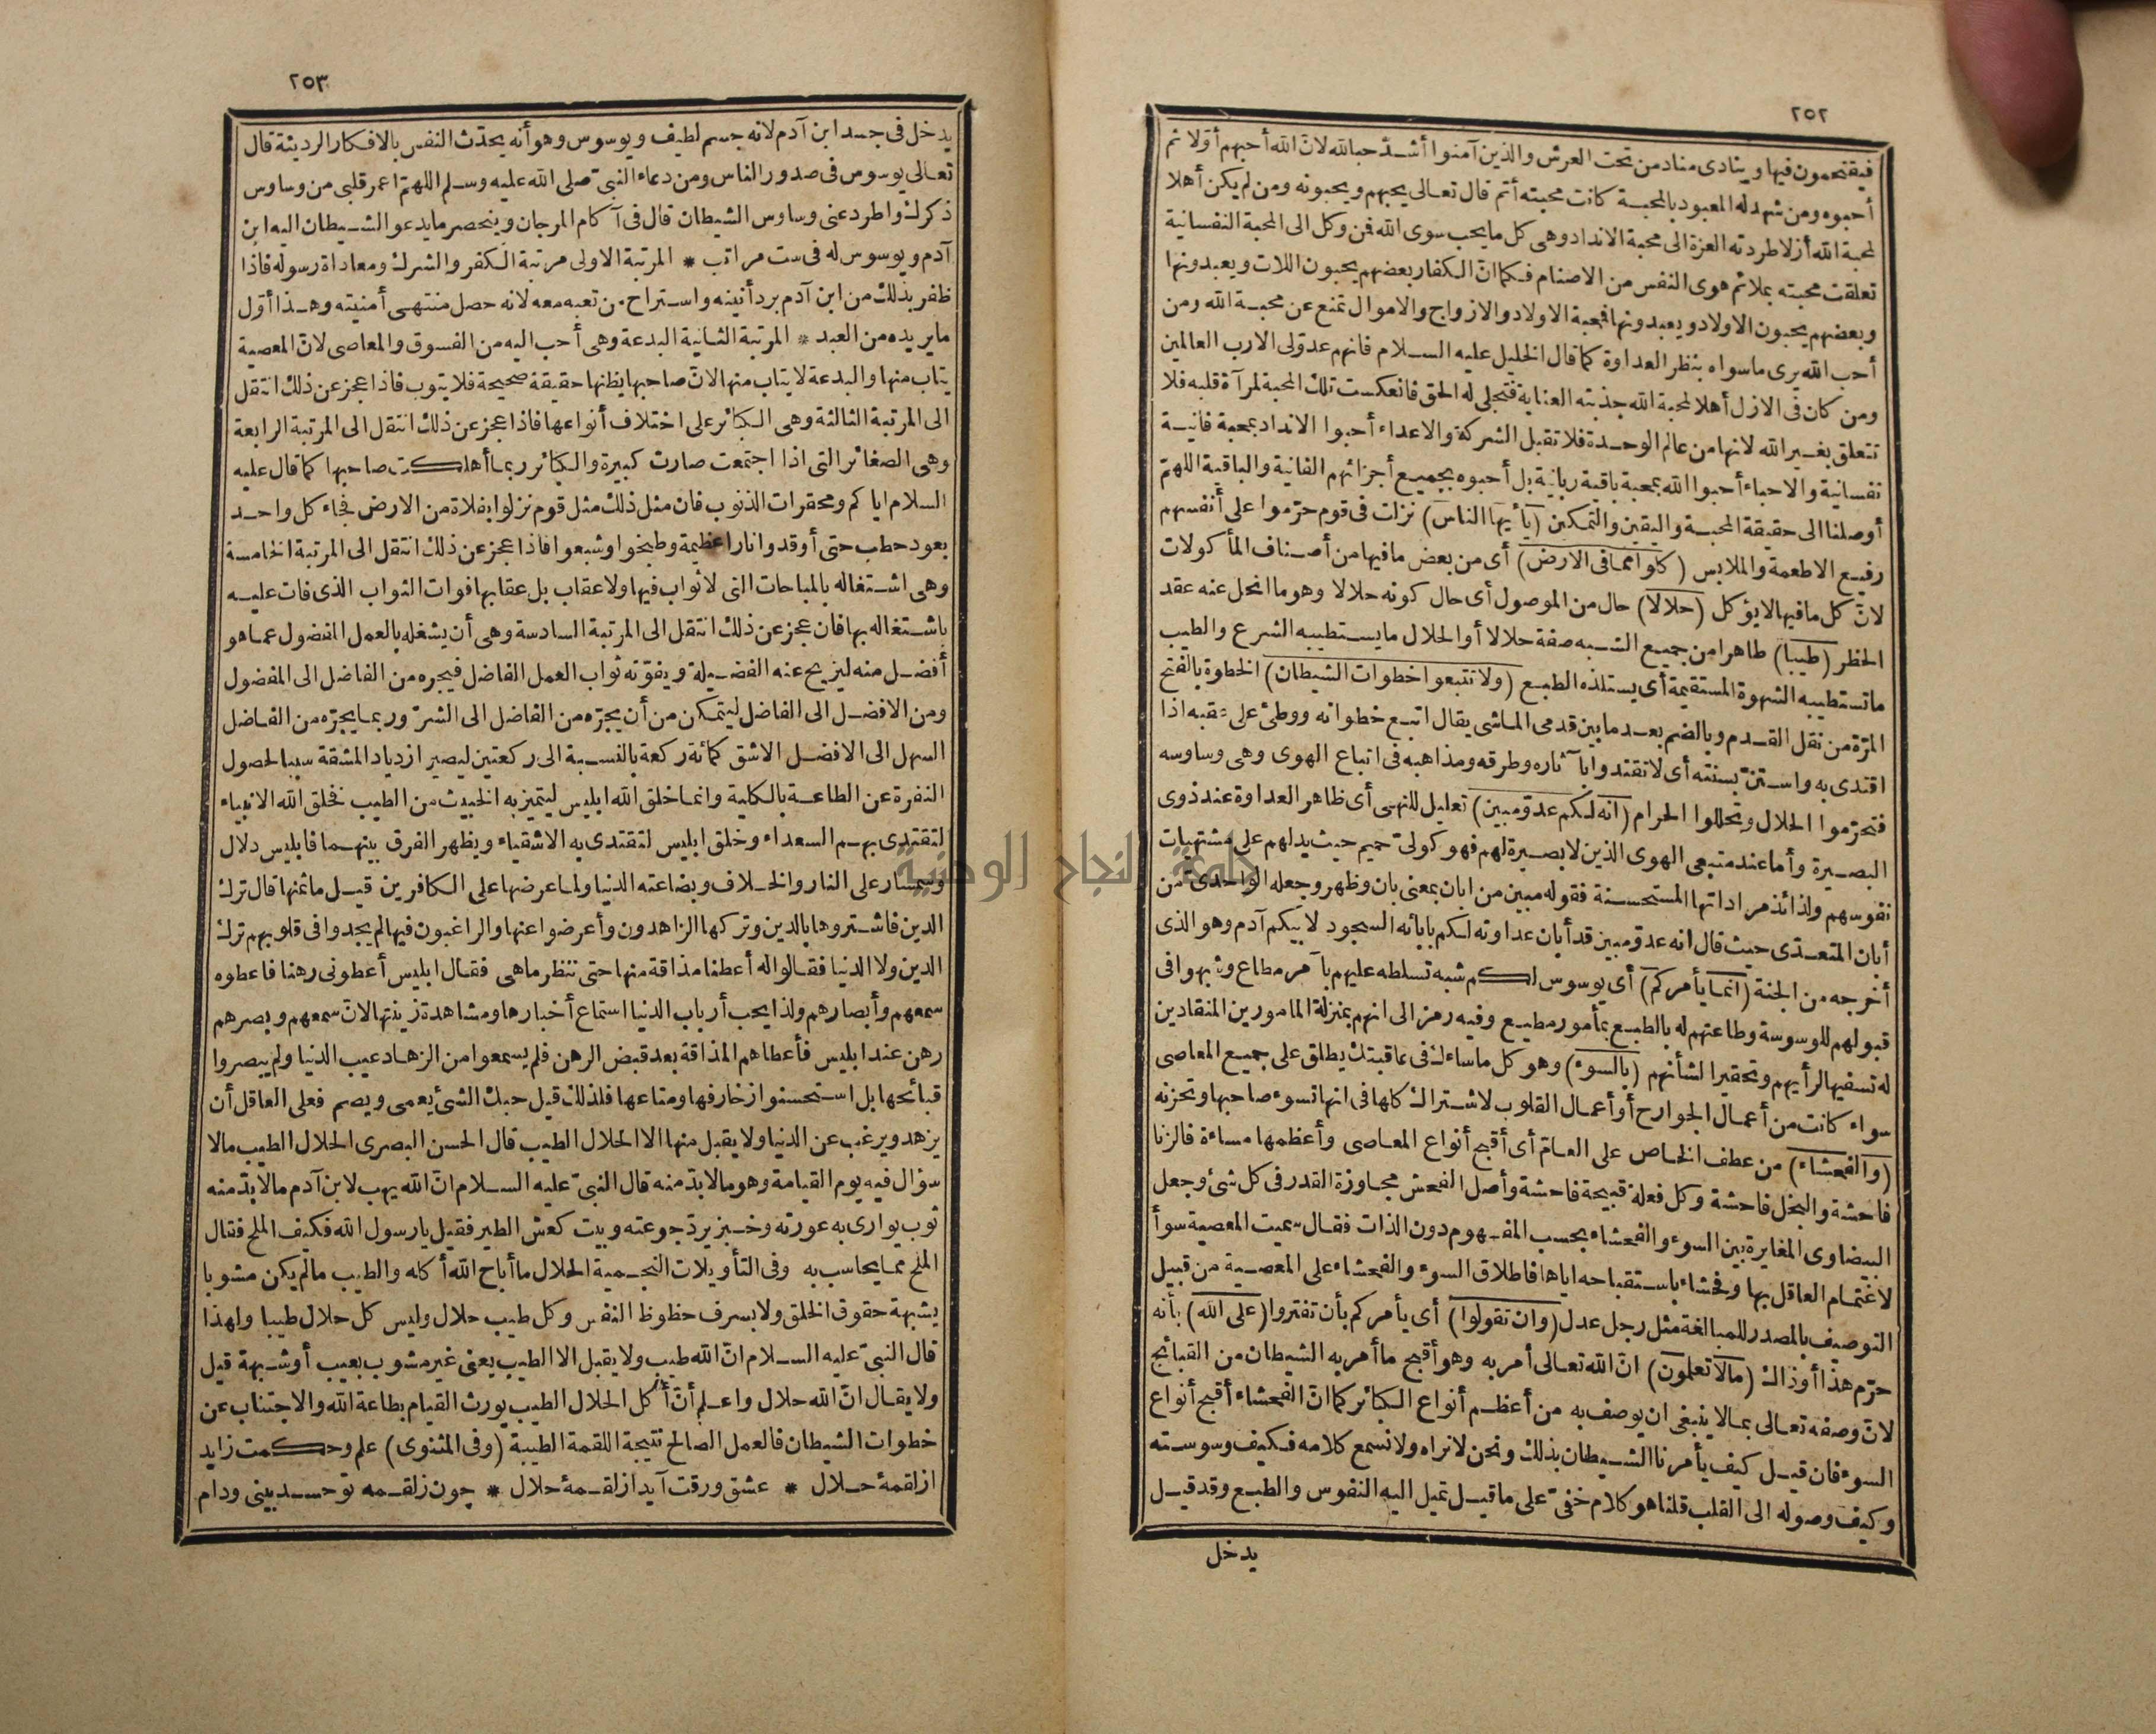 ٢٥٢
فيقتحمون فيها وينادى مناد من تحت العرش والذين آمنوا أشدّ حبا لله لانّ الله أحبهم أوّلا ثم
أحبوه ومن شهد له المعبود بالمحبة كانت محبته أتم قال تعالى يحبهم ويحبونه ومن لم يكن أهلا
لمحبة الله أزلا طردته العزة الى محبة الانداد وهى كل ما يحب سوى الله فمن وكل الى المحبة النفسانية
تعلقت محبته بملائم هوى النفس من الاصنام فكما انّ الكفار بعضهم يحبون اللات ويعبدونها
وبعضهم يحبون الاولاد ويعبدونها فمحبة الاولاد والازواج والاموال تمنع عن محبة الله ومن
أحب الله يرى ما سواه بنظر العداوة كما قال الخليل عليه السلام فانهم عدوّلى الا رب العالمين
ومن كان فى الازل أهلا لمحبة الله جذبته العناية فتجلى له الحق فانعكست تلك المحبة لمرآة قلبه فلا
تتعلق بغير الله لانها من عالم الوحدة فلا تقبل الشركة والاعداء أحبوا الانداد بمحبة فانية
نفسانية والاحباء أحبوا الله بمحبة باقية ربانية بل أحبوه بجميع أجزائهم الفانية والباقية اللهمّ
أوصلنا الى حقيقة المحبة واليقين والتمكين (يا أيها الناس) نزلت فى قوم حرّموا على أنفسهم
رفيع الاطعمة والملابس (كلوا مما فى الارض) أى من بعض ما فيها من أصناف المأكولات
لانّ كل ما فيها لا يؤكل (حلالا) حال من الموصول أى حال كونه حلالا وهو ما انحل عنه عقد
الحظر (طيبا) طاهرا من جميع الشبه صفة حلالا أوالحلال ما يستطيبه الشرع والطيب
ما تستطيبه الشهوة المستقيمة أى يستلذه الطبع (ولا تتبعوا خطوات الشيطان) الخطوة بالفتح
المرّة من نقل القدم وبالضم بعد ما بين قدمى الماشى يقال اتبع خطواته ووطئ على عقبه اذا
اقتدى به واستنّ بسنته أى لا تقتدوا بآثاره وطرقه ومذاهبه فى اتباع الهوى وهى وساوسه
فتحرّموا الحلال وتحللوا الحرام (انه لكم عدوّ مبين) تعليل للنهى أى ظاهر العداوة عند ذوى
البصيرة وأما عند متبعى الهوى الذين لا بصيرة لهم فهو كولىّ حميم حيث يدلهم على مشتهيات
نفوسهم ولذائذ مراداتها المستحسنة فقوله مبين من ابان بمعنى بان وظهر وجعله الواحدى من
أبان المتعدّى حيث قال انه عدوّ مبين قد أبان عداوته لكم بابائه السجود لابيكم آدم وهو الذى
أخرجه من الجنة (انما يأمركم) أى يوسوس لكم شبه تسلطه عليهم بآمر مطاع وشبهوا فى
قبولهم للوسوسة وطاعتهم له بالطبع بمأمور مطيع وفيه رمز الى انهم بمنزلة المامورين المنقادين
له تسفيها لرأيهم وتحقيرا لشأنهم (بالسوء) وهو كل ما ساءك فى عاقبتك يطلق على جميع المعاصى
سواء كانت من أعمال الجوارح أو أعمال القلوب لاشتراك كلها فى انها تسوء صاحبها وتحزنه
(والفحشاء) من عطف الخاص على العامّ أى أقبح أنواع المعاصى وأعظمها مساءة فالزنا
فاحشة والبخل فاحشة وكل فعلة قبيحة فاحشة وأصل الفحش مجاوزة القدر فى كل شئ وجعل
البيضاوى المغايرة بين السوء والفحشاء بحسب المفهوم دون الذات فقال سميت المعصية سوأ
لاغتمام العاقل بها وفحشاء باستقباحه اياها فاطلاق السوء والفحشاء على المعصية من قبيل
التوصيف بالمصدر للمبالغة مثل رجل عدل (وان تقولوا) أى يأمركم بأن تفتروا (على الله) بأنه
حرّم هذا أو ذاك (مالا تعلمون) انّ الله تعالى أمر به وهو أقبح ما أمر به الشيطان من القبائح
لانّ وصفه تعالى بما لا ينبغى ان يوصف به من أعظم أنواع الكبائر كما انّ الفحشاء أقبح أنواع
السوء فان قيل كيف يأمرنا الشيطان بذلك ونحن لا نراه ولا نسمع كلامه فكيف وسوسته
وكيف وصوله الى القلب قلنا هو كلام خفىّ على ما قيل تميل اليه النفوس والطبع وقد قيل
يدخل
٢٥٣
يدخل فى جسد ابن آدم لانه جسم لطيف ويوسوس وهو أنه يحدّث النفس بالافكار الرديئة قال
تعالى يوسوس فى صدور الناس ومن دعاء النبىّ صلى الله عليه وسلم اللهمّ اعمر قلبى من وساوس
ذكرك واطرد عنى وساوس الشيطان قال فى آكام المرجان وينحصر ما يدعو الشيطان اليه ابن
آدم ويوسوس له فى ست مراتب * المرتبة الاولى مرتبة الكفر والشرك ومعاداة رسوله فاذا
ظفر بذلك من ابن آدم برد أنينه واستراح من تعبه معه لانه حصل منتهى أمنيته وهذا أوّل
ما يريده من العبد * المرتبة الثانية البدعة وهى أحب اليه من الفسوق والمعاصى لانّ المعصية
يتاب منها والبدعة لا يتاب منها لانّ صاحبها يظنها حقيقة صحيحة فلا يتوب فاذا عجز عن ذلك انتقل
الى المرتبة الثالثة وهى الكبائر على اختلاف أنواعها فاذا عجز عن ذلك انتقل الى المرتبة الرابعة
وهى الصغائر التى اذا اجتمعت صارت كبيرة والكبائر ربما أهلكت صاحبها كما قال عليه
السلام اياكم ومحقرات الذنوب فان مثل ذلك مثل قوم نزلوا بفلاة من الارض فجاء كل واحد
بعود حطب حتى أوقدوا نارا عظيمة وطبخوا وشبعوا فاذا عجز عن ذلك انتقل الى المرتبة الخامسة
وهى اشتغاله بالمباحات التى لا ثواب فيها ولا عقاب بل عقابها فوات الثواب الذى فات عليه
باشتغاله بها فان عجز عن ذلك انتقل الى المرتبة السادسة وهى أن يشغله بالعمل المفضول عما هو
أفضل منه ليزيح عنه الفضيلة ويفوّته ثواب العمل الفاضل فيجره من الفاضل الى المفضول
ومن الافضل الى الفاضل ليتمكن من أن يجرّه من الفاضل الى الشرّ وربما يجرّه من الفاضل
السهل الى الافضل الاشق كمائة ركعة بالنسبة الى ركعتين ليصير ازدياد المشقة سببا لحصول
النفرة عن الطاعة بالكلية وانما خلق الله ابليس ليتميز به الخبيث من الطيب فخلق الله الانبياء
لتقتدى بهم السعداء وخلق ابليس لتقتدى به الاشقياء ويظهر الفرق بينهما فابليس دلال
وسمسار على النار والخلاف وبضاعته الدنيا ولما عرضها على الكافرين قيل ما ثمنها قال ترك
الدين فاشتروها بالدين وتركها الزاهدون وأعرضوا عنها والراغبون فيها لم يجدوا فى قلوبهم ترك
الدين ولا الدنيا فقالوا له أعطنا مذاقة منها حتى ننظر ما هى فقال ابليس أعطونى رهنا فاعطوه
سمعهم وأبصارهم ولذا يحب أرباب الدنيا استماع أخبارها ومشاهدة زينتها لانّ سمعهم وبصرهم
رهن عند ابليس فأعطاهم المذاقة بعد قبض الرهن فلم يسمعوا من الزهاد عيب الدنيا ولم يبصروا
قبائحها بل استحسنوا زخارفها ومتاعها فلذلك قيل حبك الشئ يعمى ويصم فعلى العاقل أن
يزهد ويرغب عن الدنيا ولا يقبل منها الا الحلال الطيب قال الحسن البصرى الحلال الطيب مالا
سؤال فيه يوم القيامة وهو مالا بدّ منه قال النبىّ عليه السلام انّ الله يهب لابن آدم مالا بدّ منه
ثوب يوارى به عورته وخبز يردّ جوعته وبيت كعش الطير فقيل يا رسول الله فكيف الملح فقال
الملح مما يحاسب به وفى التأويلات النجمية الحلال ما أباح الله أكله والطيب ما لم يكن مشوبا
بشبهة حقوق الخلق ولا بسرف حظوظ النفس وكل طيب حلال وليس كل حلال طيبا ولهذا
قال النبىّ عليه السلام انّ الله طيب ولا يقبل الا الطيب يعنى غير مشوب بعيب أو شبهة قيل
ولا يقال انّ الله حلال واعلم أنّ أكل الحلال الطيب يورث القيام بطاعة الله والاجتناب عن
خطوات الشيطان فالعمل الصالح نتيجة اللقمة الطيبة (وفى المثنوى) علم وحكمت زايد
از لقمهٔ حلال * عشق ورقت آيد از لقمهٔ حلال * چون ز لقمه تو حسد بينى ودام
جامعة النجاح الوطنية